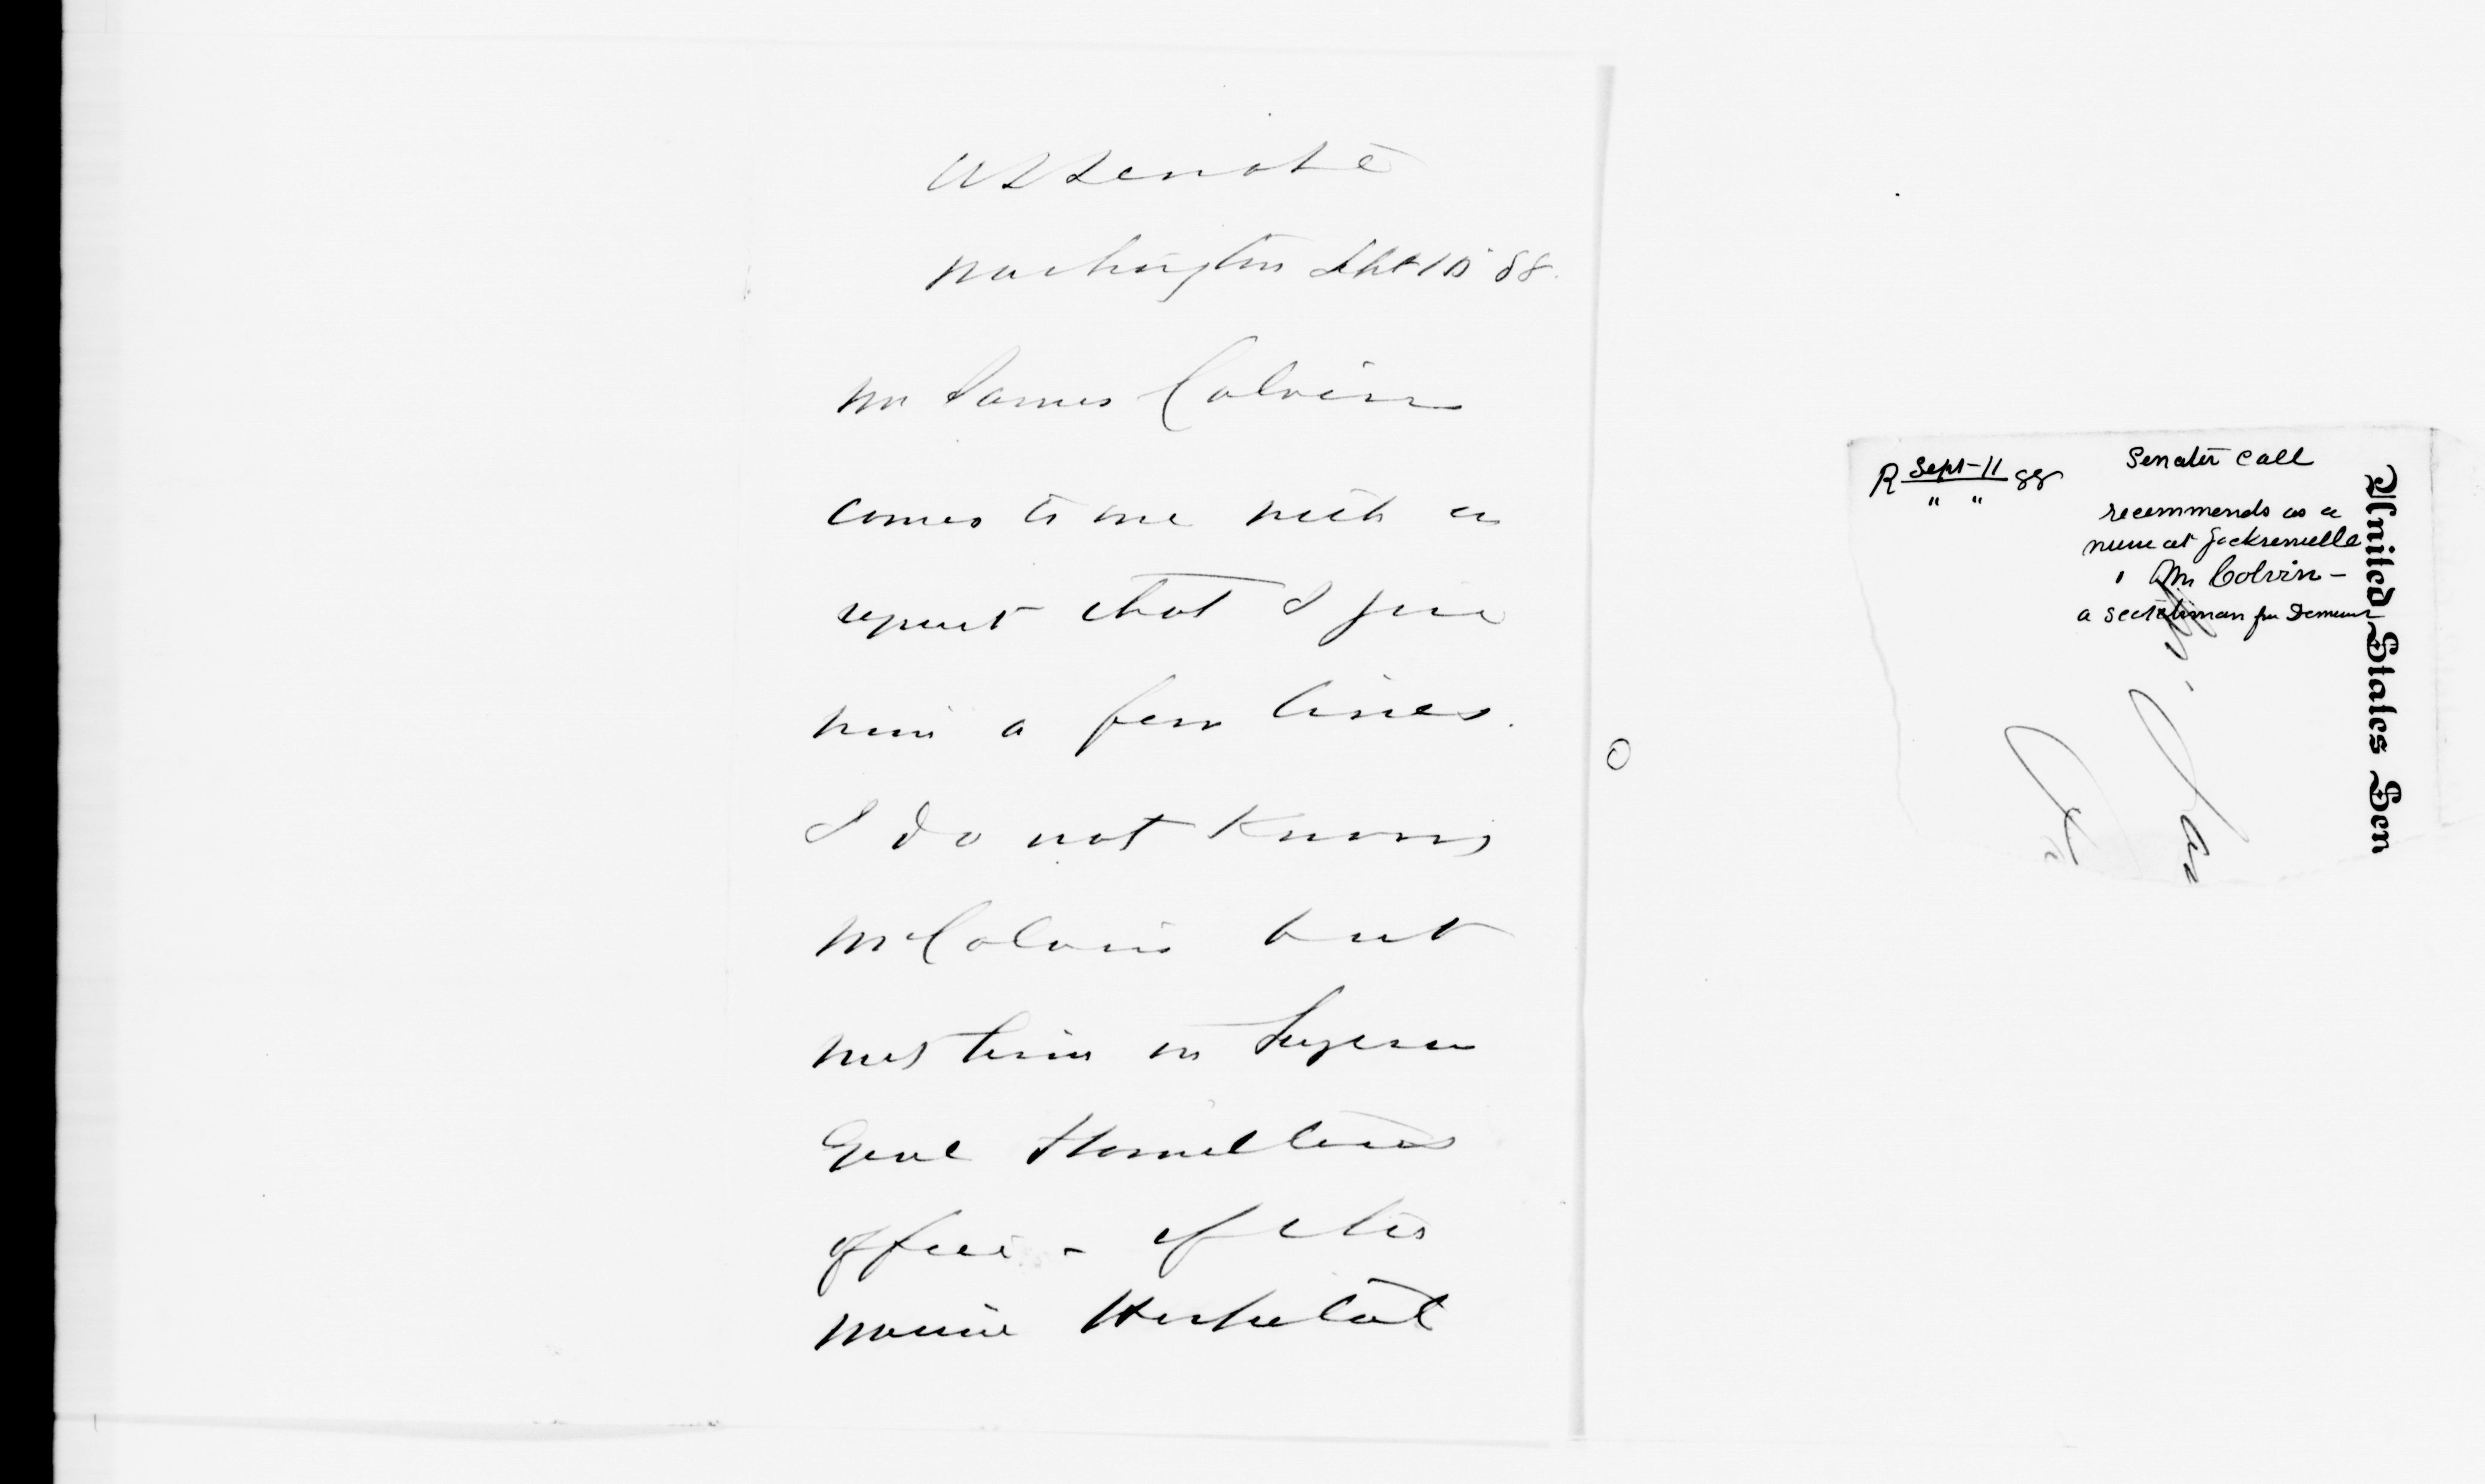 US Senate
Washington Sept 10 88.
Mr James Colvin
comes to me with a
request that I give
him a few lines.
I do not know
Mr Colvin but
met him in Surgeon
Genl Hamiltons
office - of the
Marine Hospital
R Sept-11 88
" "
Senator Call
recommends as a
nurse at Jacksonville
Mr Colvin -
a
United States Sen